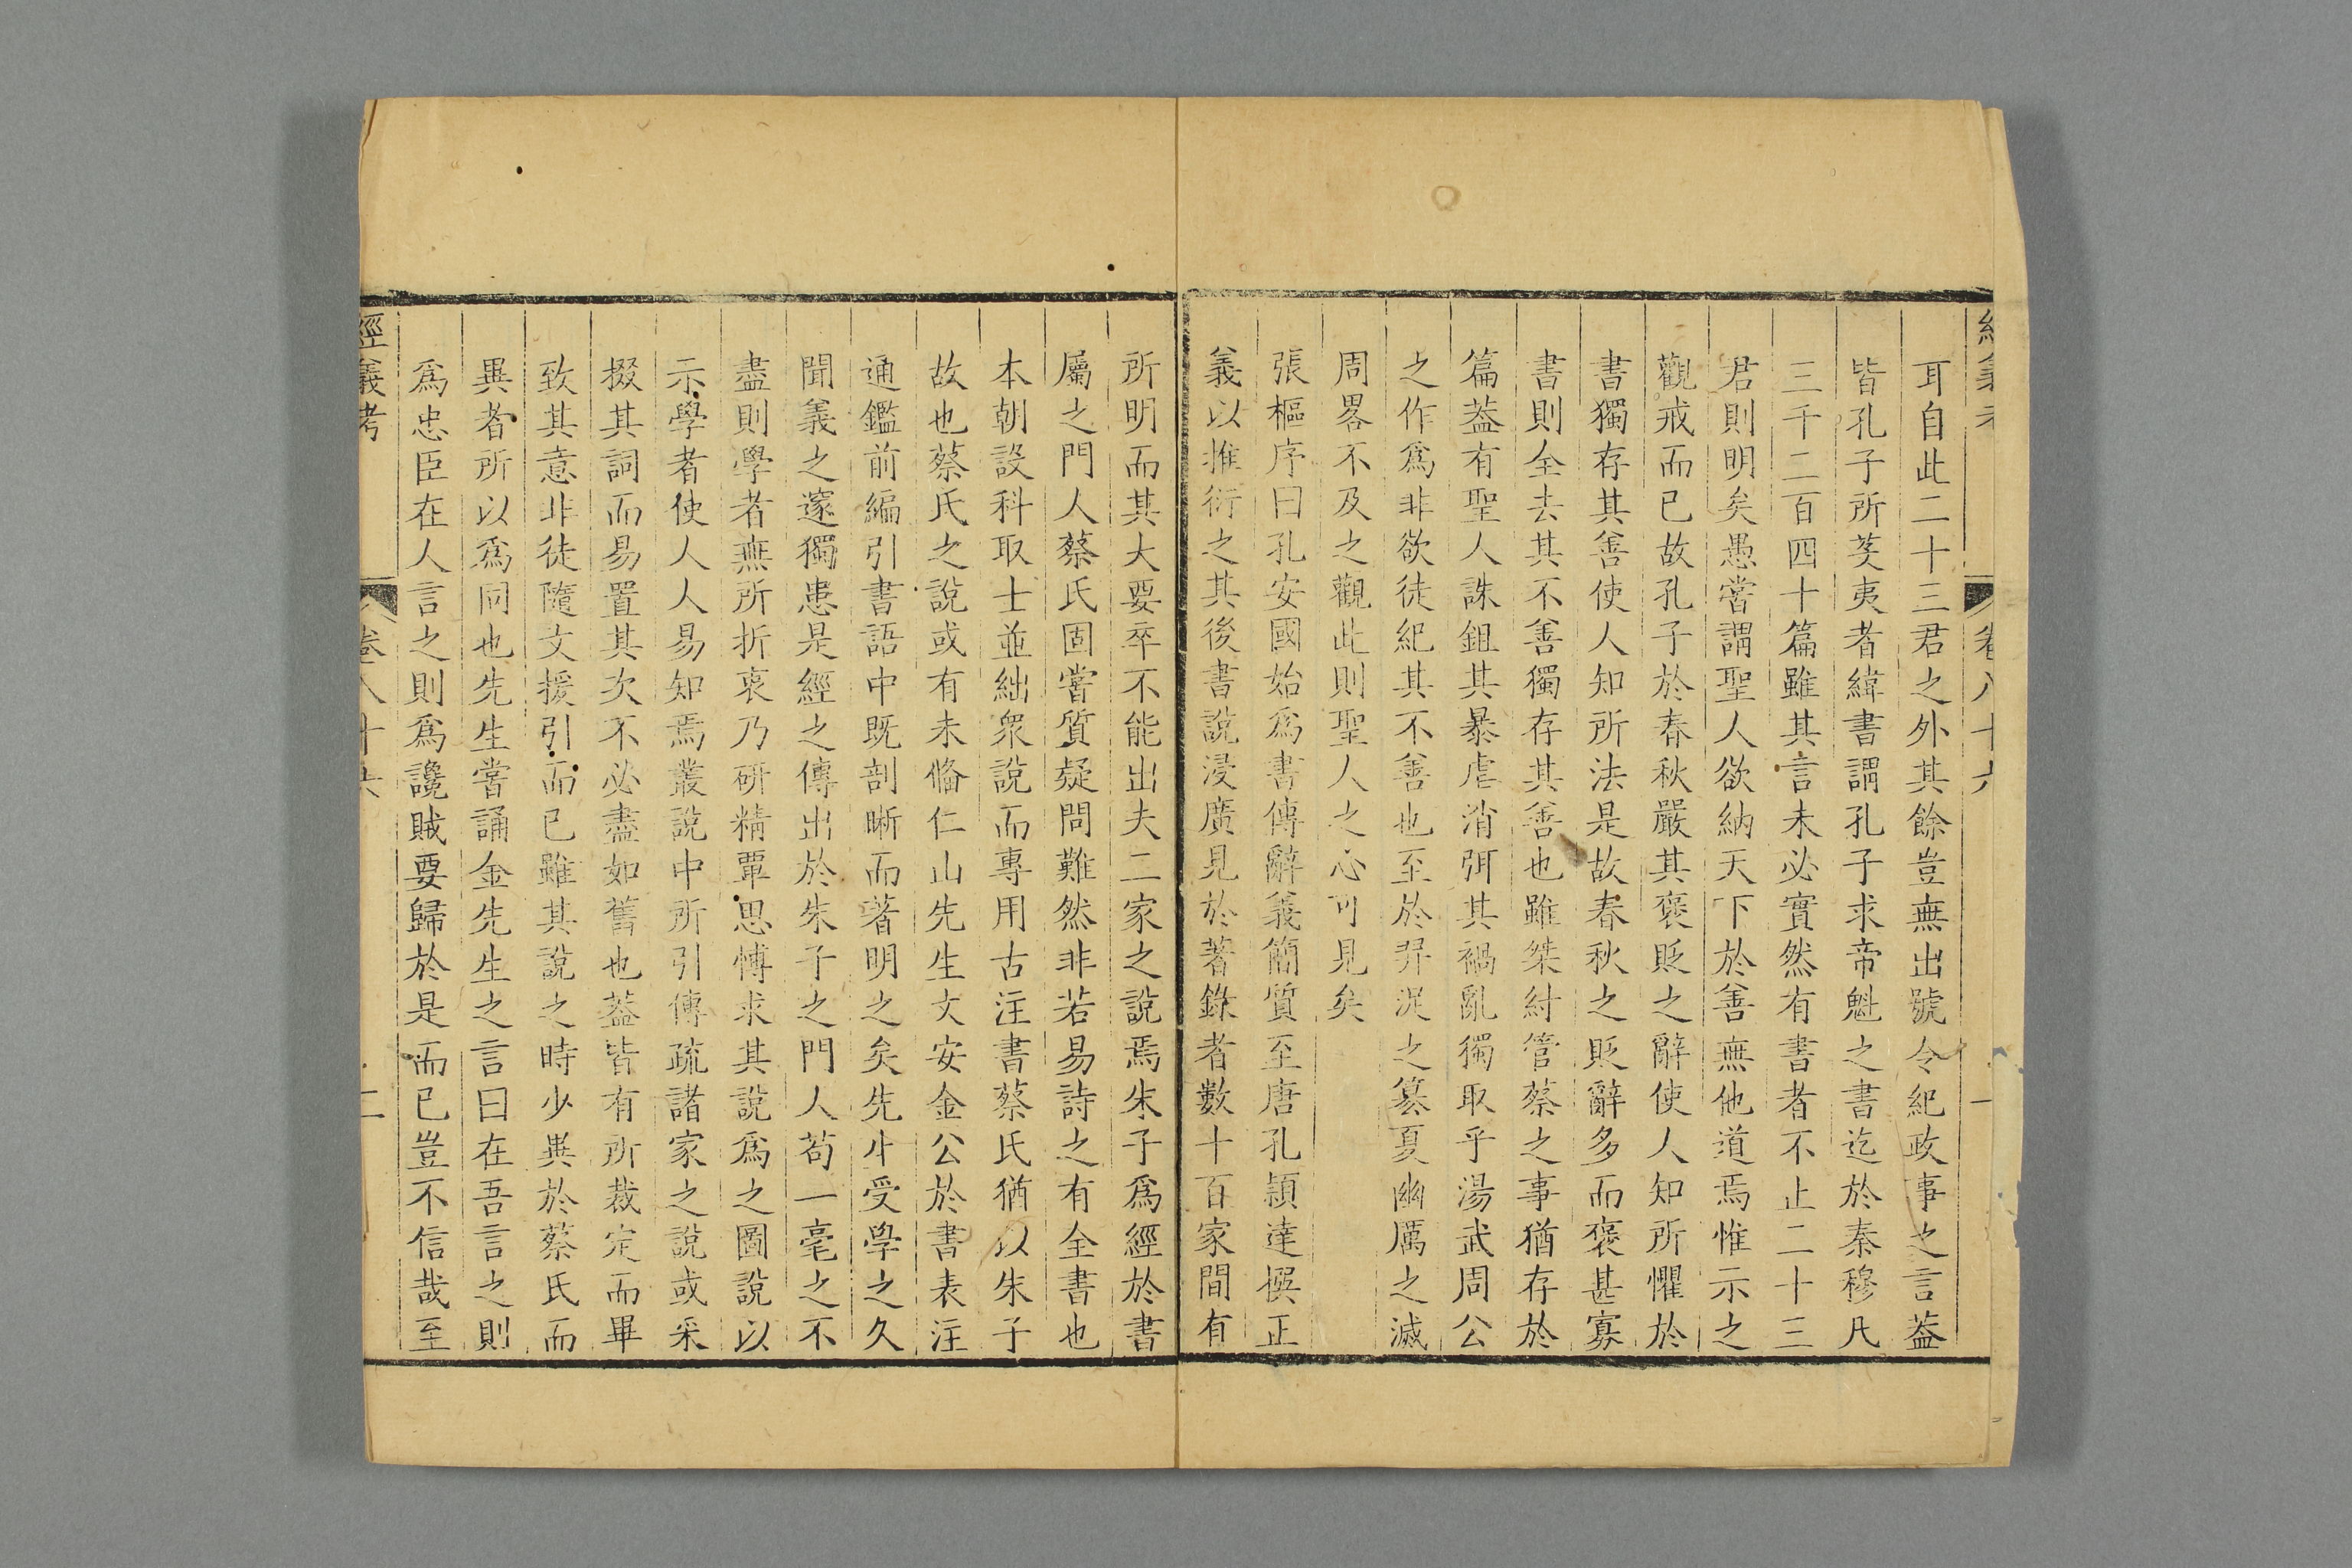 經義考 卷八十六 一
耳自此二十三君之外其餘豈無出號令紀政事之言葢
皆孔子所芟夷者緯書謂孔子求帝魁之書迄於秦穆凡
三千二百四十篇雖其言未必實然有書者不止二十三
君則明矣愚嘗謂聖人欲納天下於善無他道焉惟示之
觀戒而已故孔子於春秋嚴其褒貶之辭使人知所懼於
書獨存其善使人知所法是故春秋之貶辭多而褒甚寡
書則全去其不善獨存其善也雖桀紂管蔡之事猶存於
篇葢有聖人誅鉏其暴虐消弭其禍亂獨取乎湯武周公
之作爲非欲徒紀其不善也至於羿浞之篡夏幽厲之滅
周畧不及之觀此則聖人之心可見矣
張樞序曰孔安國始爲書傳辭義簡質至唐孔穎達撰正
義以推衍之其後書說浸廣見於著錄者數十百家間有
所明而其大要卒不能出夫二家之說焉朱子爲經於書
屬之門人蔡氏固嘗質疑問難然非若易詩之有全書也
本朝設科取士並絀衆說而專用古注書蔡氏猶以朱子
故也蔡氏之說或有未備仁山先生文安金公於書表注
通鑑前編引書語中既剖晰而著明之矣先生受學之久
聞義之邃獨患是經之傳出於朱子之門人苟一毫之不
盡則學者無所折衷乃研精覃思博求其說爲之圖說以
示學者使人人易知焉叢說中所引傳疏諸家之說或采
掇其詞而易置其次不必盡如舊也葢皆有所裁定而畢
致其意非徒隨文援引而已雖其說之時少異於蔡氏而
異者所以爲同也先生嘗誦金先生之言曰在吾言之則
爲忠臣在人言之則爲讒賊要歸於是而已豈不信哉至
經義考 卷八十六 二